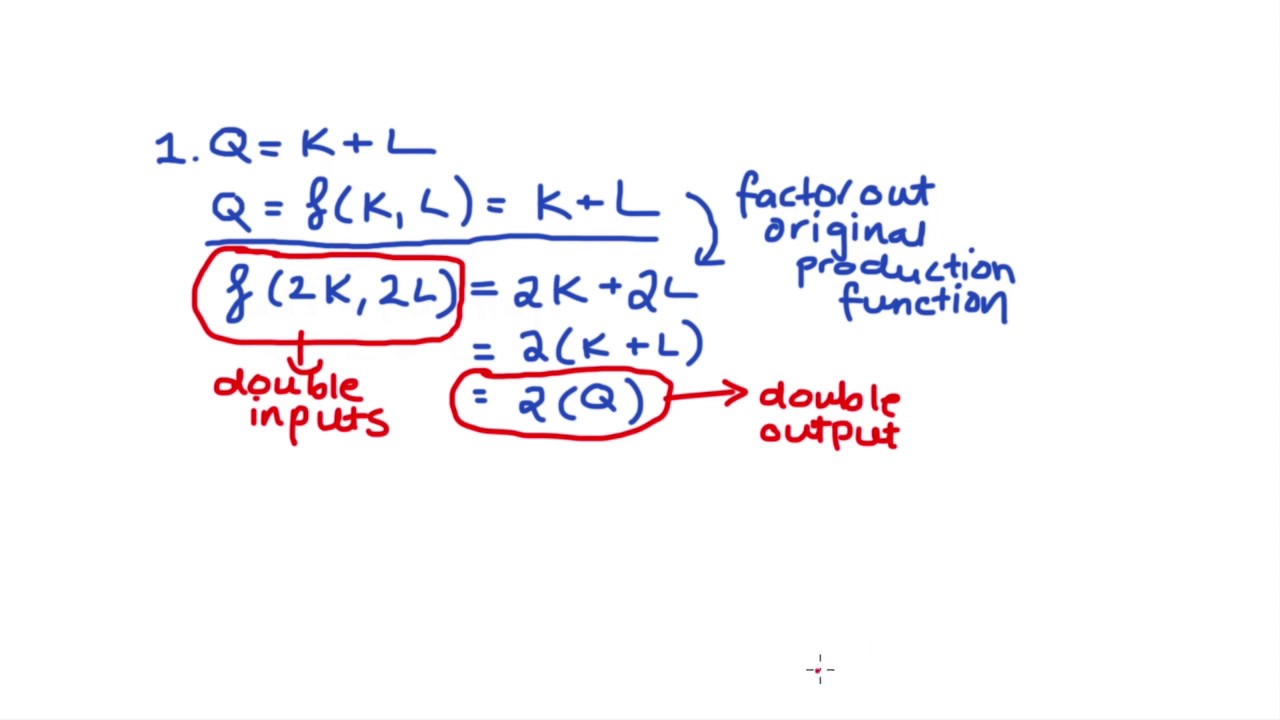 1. Q = K + L
Q = f(K, L) = K + L
factor out
original
production
function
f(2K, 2L) = 2K + 2L
= 2(K + L)
= 2(Q)
double
inputs
double
output